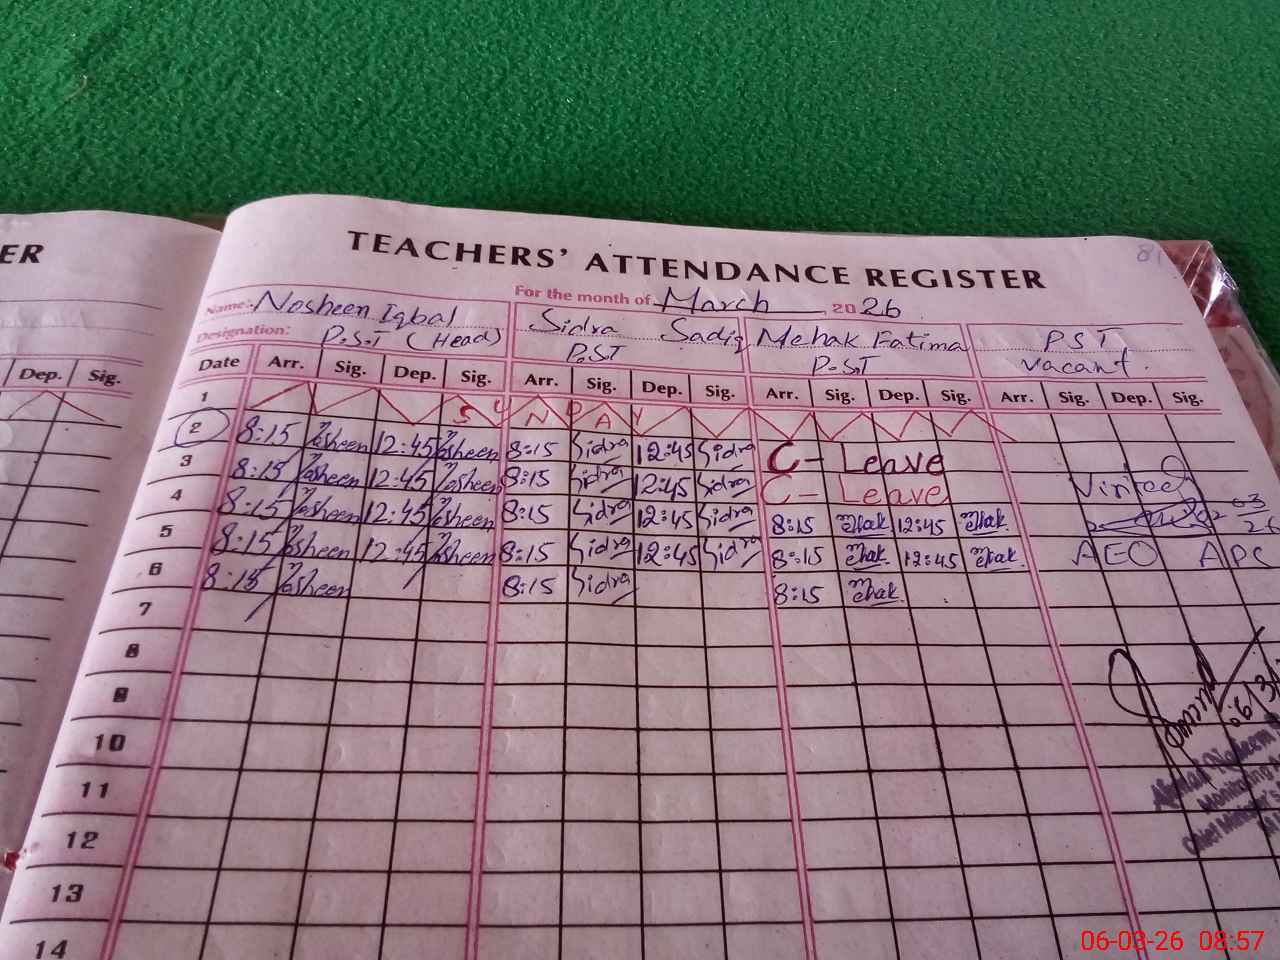 ER
81
TEACHERS' ATTENDANCE REGISTER
For the month of March 2026
Name: Nosheen Iqbal Sidra Sadiq Mehak Fatima PST
Designation: P.S.T (Head) P.S.T P.S.T Vacant.
Dep. Sig.
Date Arr. Sig. Dep. Sig. Arr. Sig. Dep. Sig. Arr. Sig. Dep. Sig. Arr. Sig. Dep. Sig.
1 S U N D A Y
2 8:15 Nosheen 12:45 Nosheen 8:15 Sidra 12:45 Sidra C- Leave
3 8:15 Nosheen 12:45 Nosheen 8:15 Sidra 12:45 Sidra C- Leave
4 8:15 Nosheen 12:45 Nosheen 8:15 Sidra 12:45 Sidra 8:15 Mehak 12:45 Mehak
5 8:15 Nosheen 12:45 Nosheen 8:15 Sidra 12:45 Sidra 8:15 Mehak 12:45 Mehak AEO APC
6 8:15 Nosheen 8:15 Sidra 8:15 Mehak
7
8
9
10
11
12
13
14
06-03-26 08:57